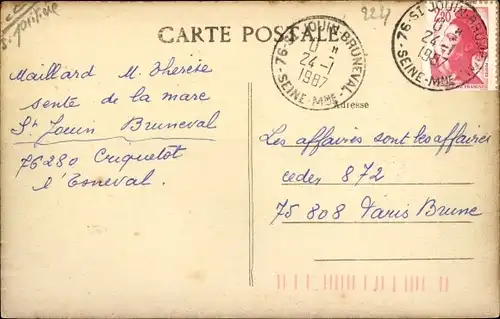 CARTE POSTALE
76-ST JOUIN-BRUNEVAL
24-7
1987
SEINE-Mme
76-ST JOUIN-BRUNEVAL
24-7
1987
SEINE-Mme
2,20
Adresse
Maillard M. Thérèse
sente de la mare
St Jouin Bruneval
76280 Criquetot
l'Esneval
Les affaires sont les affaires
cedex 872
75 808 Paris Brune